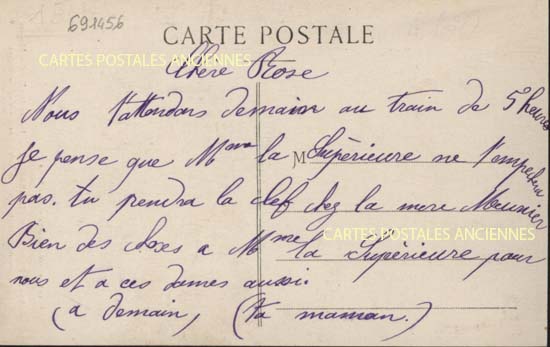 691456
CARTE POSTALE
CARTES POSTALES ANCIENNES
Chère Rose
Nous t'attendons demain au train de 5 heures
je pense que Mme la M Supérieure ne t'empechera
pas. tu prendra la clef chez la mere Meunier
CARTES POSTALES ANCIENNES
Bien des choses a Mme la Supérieure pour
nous et a ces dames aussi.
(a demain, (ta maman.)